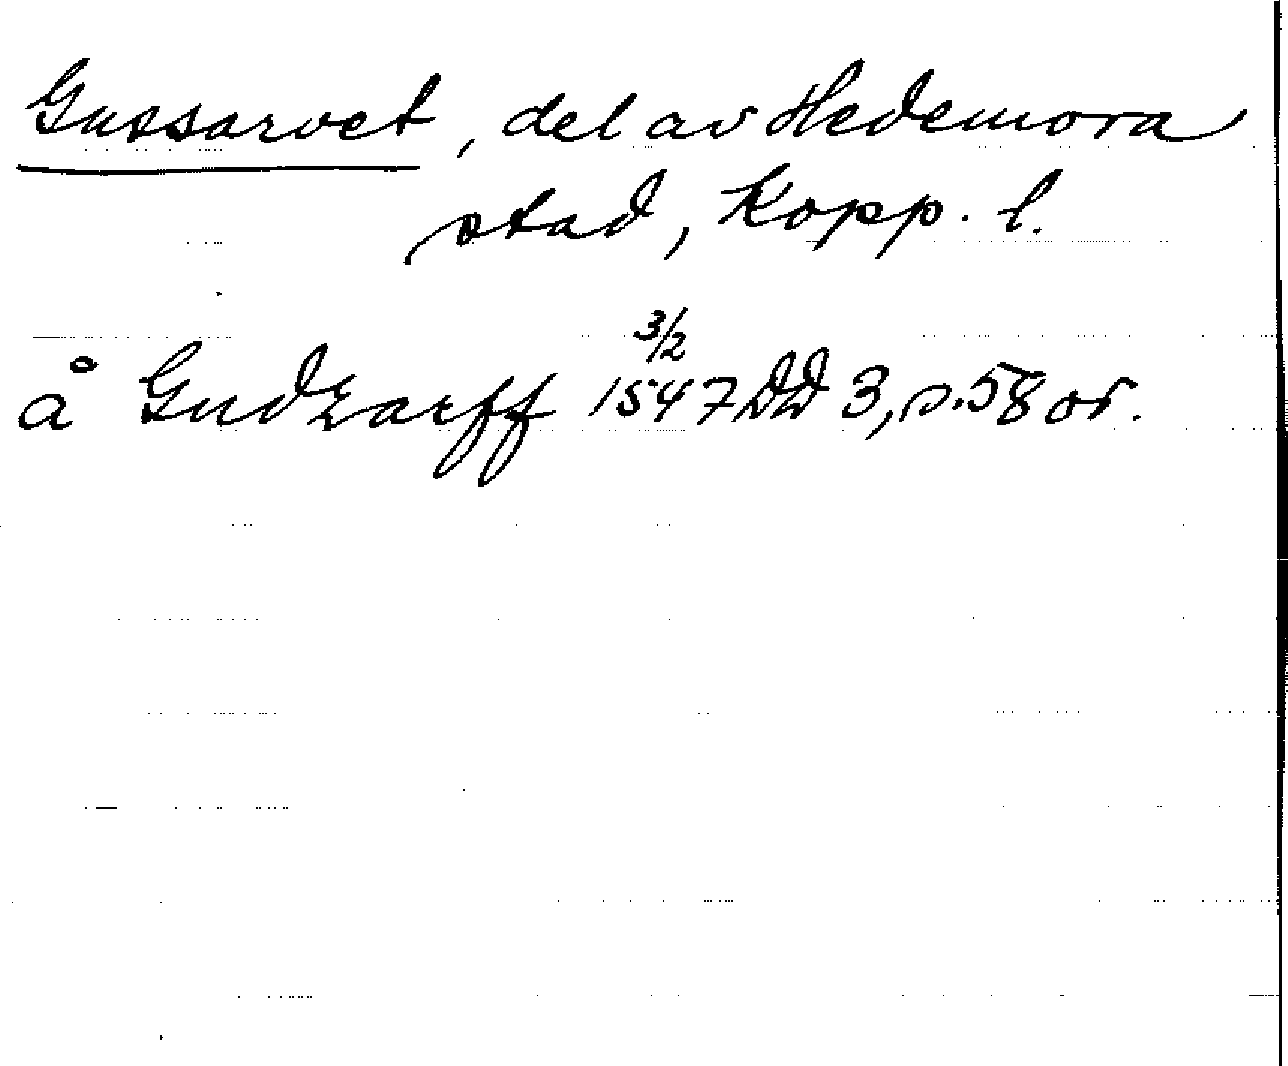 Gussarvet, del av Hedemora
stad, Kopp. l.
å Gudzarff 3/2 1547 DD 3, s. 58 or.